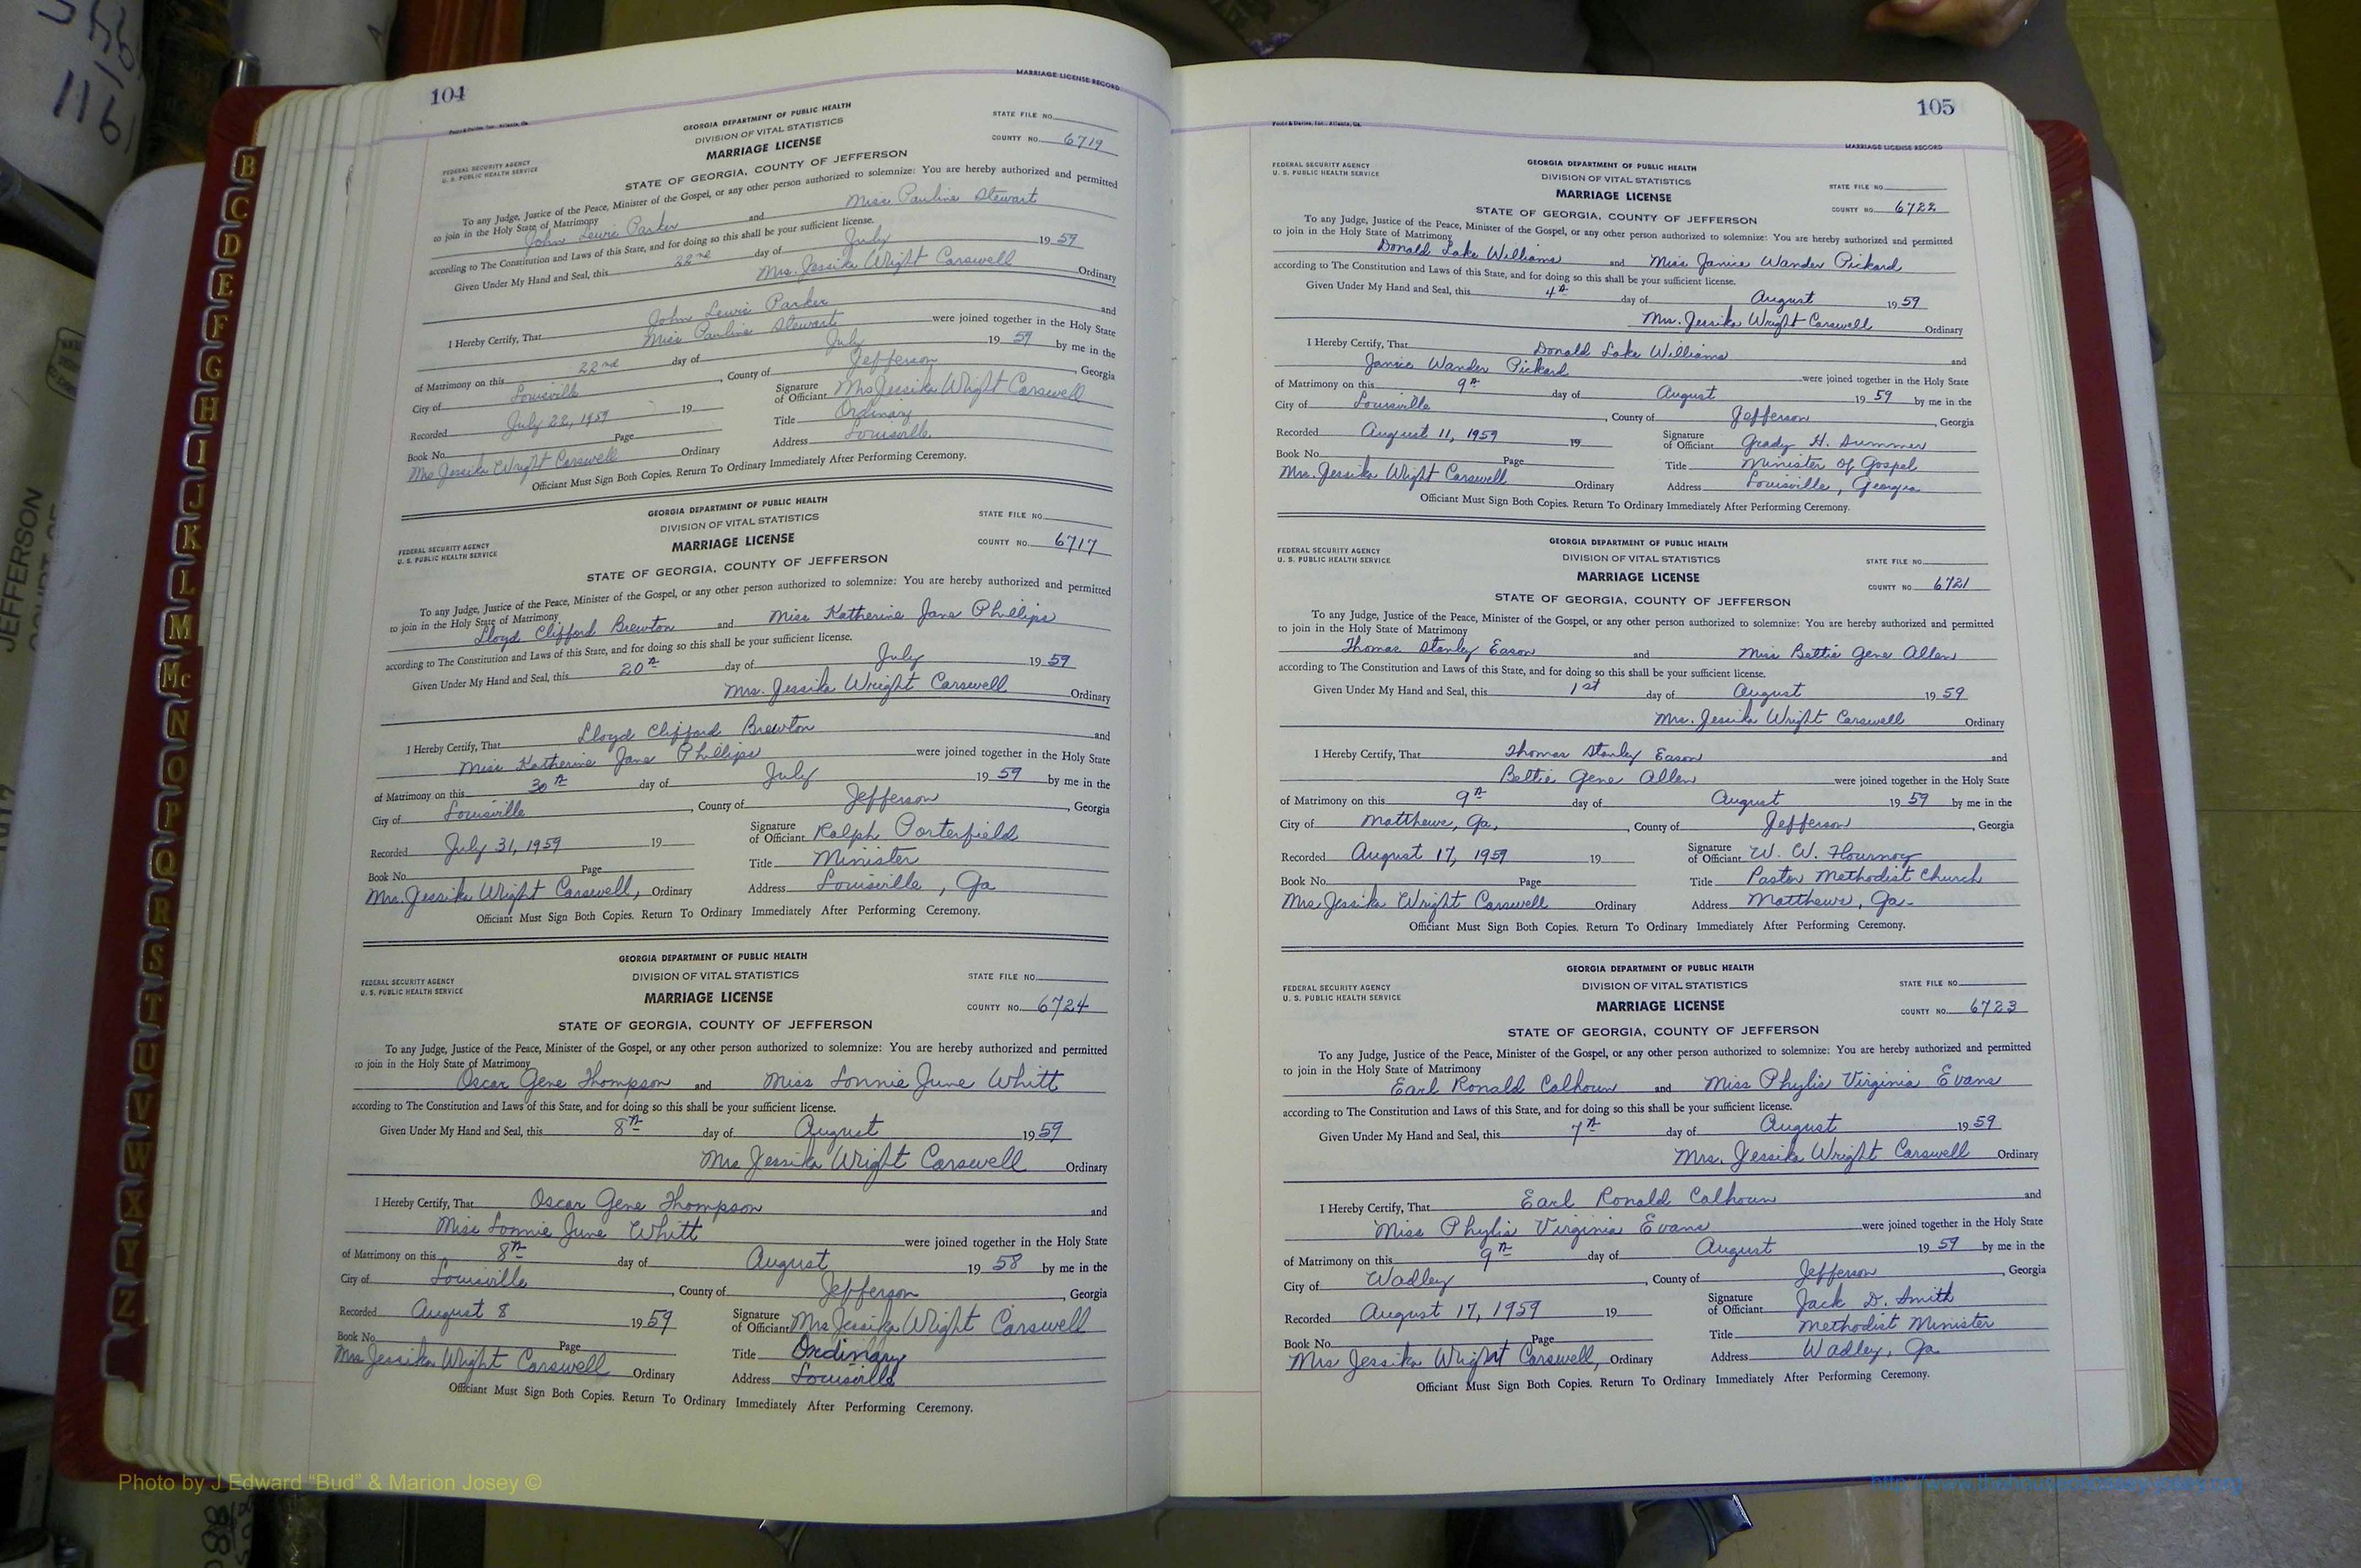 104
MARRIAGE LICENSE RECORD
GEORGIA DEPARTMENT OF PUBLIC HEALTH
DIVISION OF VITAL STATISTICS
MARRIAGE LICENSE
STATE FILE NO.
COUNTY NO. 6719
FEDERAL SECURITY AGENCY
U. S. PUBLIC HEALTH SERVICE
STATE OF GEORGIA, COUNTY OF JEFFERSON
To any Judge, Justice of the Peace, Minister of the Gospel, or any other person authorized to solemnize: You are hereby authorized and permitted
to join in the Holy State of Matrimony
John Lewis Parker and Miss Pauline Stewart
according to The Constitution and Laws of this State, and for doing so this shall be your sufficient license.
Given Under My Hand and Seal, this 22nd day of July 19 59
Mrs. Jessika Wright Carswell Ordinary
I Hereby Certify, That John Lewis Parker and
Miss Pauline Stewart were joined together in the Holy State
of Matrimony on this 22nd day of July 19 59 by me in the
City of Louisville, County of Jefferson, Georgia
Recorded July 22, 1959 19 Signature of Officiant Mrs Jessika Wright Carswell
Book No. Page Title Ordinary
Mrs Jessika Wright Carswell Ordinary Address Louisville
Officiant Must Sign Both Copies. Return To Ordinary Immediately After Performing Ceremony.
GEORGIA DEPARTMENT OF PUBLIC HEALTH
DIVISION OF VITAL STATISTICS
MARRIAGE LICENSE
STATE FILE NO.
COUNTY NO. 6717
FEDERAL SECURITY AGENCY
U. S. PUBLIC HEALTH SERVICE
STATE OF GEORGIA, COUNTY OF JEFFERSON
To any Judge, Justice of the Peace, Minister of the Gospel, or any other person authorized to solemnize: You are hereby authorized and permitted
to join in the Holy State of Matrimony
Lloyd Clifford Brewton and Miss Katherine Jane Phillips
according to The Constitution and Laws of this State, and for doing so this shall be your sufficient license.
Given Under My Hand and Seal, this 20th day of July 19 59
Mrs. Jessika Wright Carswell Ordinary
I Hereby Certify, That Lloyd Clifford Brewton and
Miss Katherine Jane Phillips were joined together in the Holy State
of Matrimony on this 30th day of July 19 59 by me in the
City of Louisville, County of Jefferson, Georgia
Recorded July 31, 1959 19 Signature of Officiant Ralph Porterfield
Book No. Page Title Minister
Mrs. Jessika Wright Carswell, Ordinary Address Louisville, Ga
Officiant Must Sign Both Copies. Return To Ordinary Immediately After Performing Ceremony.
GEORGIA DEPARTMENT OF PUBLIC HEALTH
DIVISION OF VITAL STATISTICS
MARRIAGE LICENSE
STATE FILE NO.
COUNTY NO. 6724
FEDERAL SECURITY AGENCY
U. S. PUBLIC HEALTH SERVICE
STATE OF GEORGIA, COUNTY OF JEFFERSON
To any Judge, Justice of the Peace, Minister of the Gospel, or any other person authorized to solemnize: You are hereby authorized and permitted
to join in the Holy State of Matrimony
Oscar Gene Thompson and Miss Lonnie June Whitt
according to The Constitution and Laws of this State, and for doing so this shall be your sufficient license.
Given Under My Hand and Seal, this 8th day of August 19 59
Mrs Jessika Wright Carswell Ordinary
I Hereby Certify, That Oscar Gene Thompson and
Miss Lonnie June Whitt were joined together in the Holy State
of Matrimony on this 8th day of August 19 58 by me in the
City of Louisville, County of Jefferson, Georgia
Recorded August 8 19 59 Signature of Officiant Mrs Jessika Wright Carswell
Book No. Page Title Ordinary
Mrs Jessika Wright Carswell Ordinary Address Louisville
Officiant Must Sign Both Copies. Return To Ordinary Immediately After Performing Ceremony.
105
MARRIAGE LICENSE RECORD
GEORGIA DEPARTMENT OF PUBLIC HEALTH
DIVISION OF VITAL STATISTICS
MARRIAGE LICENSE
STATE FILE NO.
COUNTY NO. 6722
FEDERAL SECURITY AGENCY
U. S. PUBLIC HEALTH SERVICE
STATE OF GEORGIA, COUNTY OF JEFFERSON
To any Judge, Justice of the Peace, Minister of the Gospel, or any other person authorized to solemnize: You are hereby authorized and permitted
to join in the Holy State of Matrimony
Donald Lake Williams and Miss Janice Wander Pickard
according to The Constitution and Laws of this State, and for doing so this shall be your sufficient license.
Given Under My Hand and Seal, this 4th day of August 19 59
Mrs. Jessika Wright Carswell Ordinary
I Hereby Certify, That Donald Lake Williams and
Janice Wander Pickard were joined together in the Holy State
of Matrimony on this 9th day of August 19 59 by me in the
City of Louisville, County of Jefferson, Georgia
Recorded August 11, 1959 19 Signature of Officiant Grady H. Summer
Book No. Page Title Minister of Gospel
Mrs. Jessika Wright Carswell Ordinary Address Louisville, Georgia
Officiant Must Sign Both Copies. Return To Ordinary Immediately After Performing Ceremony.
GEORGIA DEPARTMENT OF PUBLIC HEALTH
DIVISION OF VITAL STATISTICS
MARRIAGE LICENSE
STATE FILE NO.
COUNTY NO. 6721
FEDERAL SECURITY AGENCY
U. S. PUBLIC HEALTH SERVICE
STATE OF GEORGIA, COUNTY OF JEFFERSON
To any Judge, Justice of the Peace, Minister of the Gospel, or any other person authorized to solemnize: You are hereby authorized and permitted
to join in the Holy State of Matrimony
Thomas Stanley Eason and Miss Bettie Gene Allen
according to The Constitution and Laws of this State, and for doing so this shall be your sufficient license.
Given Under My Hand and Seal, this 1st day of August 19 59
Mrs. Jessika Wright Carswell Ordinary
I Hereby Certify, That Thomas Stanley Eason and
Bettie Gene Allen were joined together in the Holy State
of Matrimony on this 9th day of August 19 59 by me in the
City of Matthews, Ga., County of Jefferson, Georgia
Recorded August 17, 1959 19 Signature of Officiant W. W. Flournoy
Book No. Page Title Pastor Methodist Church
Mrs Jessika Wright Carswell Ordinary Address Matthews, Ga.
Officiant Must Sign Both Copies. Return To Ordinary Immediately After Performing Ceremony.
GEORGIA DEPARTMENT OF PUBLIC HEALTH
DIVISION OF VITAL STATISTICS
MARRIAGE LICENSE
STATE FILE NO.
COUNTY NO. 6723
FEDERAL SECURITY AGENCY
U. S. PUBLIC HEALTH SERVICE
STATE OF GEORGIA, COUNTY OF JEFFERSON
To any Judge, Justice of the Peace, Minister of the Gospel, or any other person authorized to solemnize: You are hereby authorized and permitted
to join in the Holy State of Matrimony
Earl Ronald Calhoun and Miss Phylis Virginia Evans
according to The Constitution and Laws of this State, and for doing so this shall be your sufficient license.
Given Under My Hand and Seal, this 7th day of August 19 59
Mrs. Jessika Wright Carswell Ordinary
I Hereby Certify, That Earl Ronald Calhoun and
Miss Phylis Virginia Evans were joined together in the Holy State
of Matrimony on this 9th day of August 19 59 by me in the
City of Wadley, County of Jefferson, Georgia
Recorded August 17, 1959 19 Signature of Officiant Jack D. Smith
Book No. Page Title Methodist Minister
Mrs Jessika Wright Carswell, Ordinary Address Wadley, Ga
Officiant Must Sign Both Copies. Return To Ordinary Immediately After Performing Ceremony.
B
C
D
E
F
G
H
I
J
K
L
M
Mc
N
O
P
Q
R
S
T
U
V
W
X
Y
Z
JEFFERSON
Photo by J Edward “Bud” & Marion Josey ©